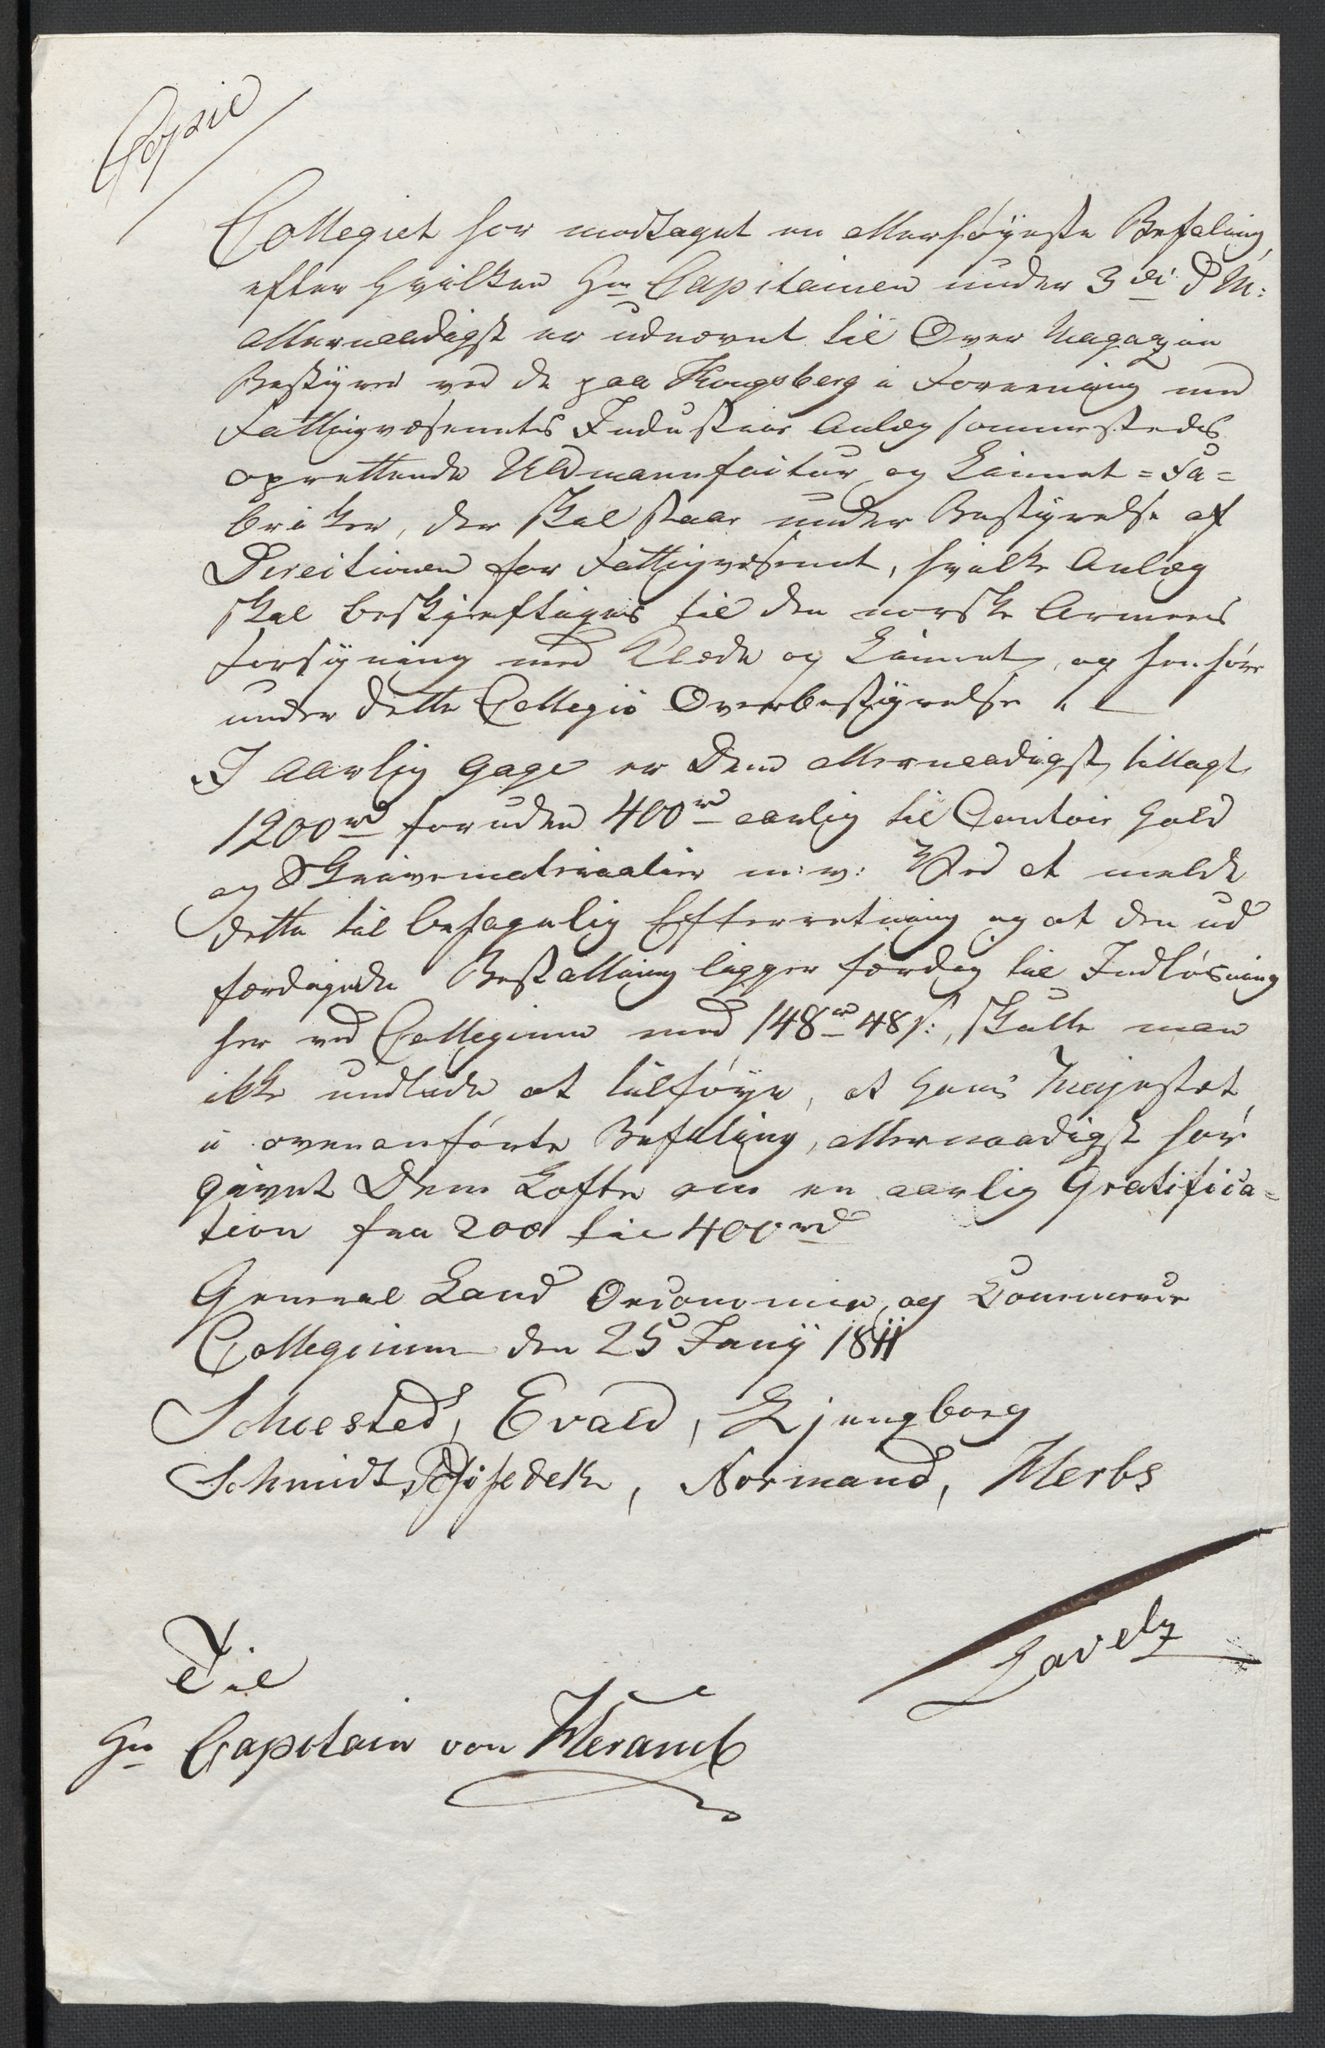 Copie
Collegiet har modtaget en allerhöyeste Befaling,
efter hvilken Hr Capitainen under 3die d. M:
allernaadigst er udnevnt til Over Magazin
Bestyrer ved de paa Kongsberg i Foreening med
Fattigvæsenets Industrie Anlæg sammesteds
oprettende Uldmanufactur og Linnet=Fa=
briker, der skal staae under Bestyrelse af
Directionen for Fattigvæsenet, hvilke Anlæg
skal beskjeftiges til den norske Armees
Forsyning med Klæde og Linnet, og henhöre
under dette Collegii Overbestyrelse .
I aarlig Gage er Dem allernaadigst tillagt
1200rd foruden 400rd aarlig til Contoir Hold
og Skrivematerialier m: v: Ved at melde
dette til behagelig Efterretning og at den ud
færdigede Bestalling ligger færdig til Indlösning
her ved Collegium med 148rd 48s:, skulle man
ikke undlade at tilföye, at Hans Majestet
i ovenanförte Befaling, allernaadigst har
givet Dem Löfte om en aarlig Gratifica=
tion fra 200 til 400rd
General Land Oeconomie og Commerce
Collegium den 25 Junij 1811
Sehested, Evald, Ljungberg
Schmidt Phiseldek, Normand, Klerbs
Til
Hr Capitain von Kleramb